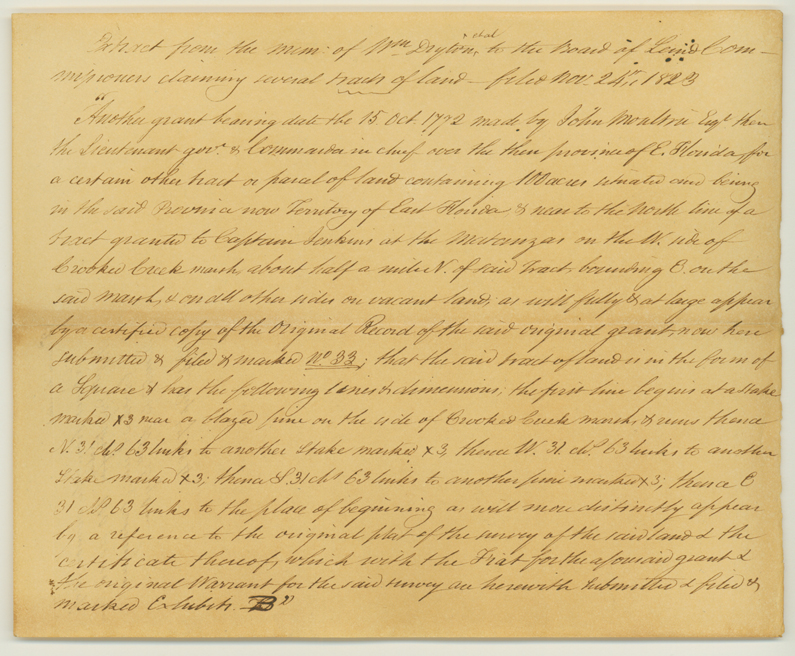 Extract from the Mem: of Wm Drayton, et al to the Board of Land Com-
missioners claiming several tracts of land - filed Nov. 24th, 1823
"Another grant bearing date the 15 Oct. 1772 made by John Moultrie Esqr then
the Lieutenant govr & Commander in chief over the then province of E. Florida, for
a certain other tract or parcel of land containing 100 acres situated and being
in the said Province now Territory of East Florida & near to the North line of a
tract granted to Captain Jenkins at the Matanzas on the W. side of
Crooked Creek marsh about half a mile N. of said Tract, bounding E. on the
said marsh, & on all other sides on vacant land, as will fully & at large appear
by a certified copy of the Original Record of the said original grant, now here
submitted & filed & marked No 33; that the said tract of land is in the form of
a Square & has the following lines & dimensions, the first line begins at a stake
marked X3 near a blazed pine on the side of Crooked Creek marsh, & runs thence
N. 31 chs 63 links to another stake marked X3, thence W. 31 chs. 63 links to another
stake marked X3; thence S. 31 chs 63 links to another pine marked X3; thence E
31 chs 63 links to the place of beginning as will more distinctly appear
by a reference to the original plat of the survey of the said land & the
certificate thereof, which with the Fiat for the aforesaid grant &
the original Warrant for the said survey are herewith submitted & filed &
marked Exhibits - B"